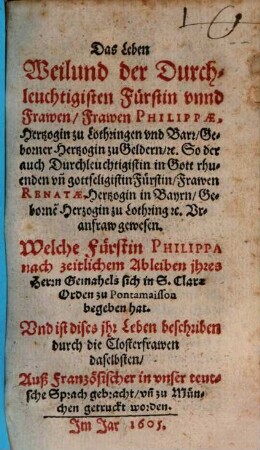 Das Leben
Weilund der Durch-
leuchtigisten Fürstin vnnd
Frawen/ Frawen PHILIPPÆ,
Hertzogin zu Lothringen vnd Barr/ Ge-
borner Hertzogin zu Geldern/ꝛc. So der
auch Durchleuchtigistin in Gott rhu-
enden vñ gottseligistin Fürstin/ Frawen
RENATÆ, Hertzogin in Bayrn/ Ge-
bornẽ Hertzogin zu Lothring ꝛc. Vr-
anfraw gewesen.
Welche Fürstin PHILIPPA
nach zeitlichem Ableiben jhres
Herrn Gemahels sich in S. Clar-
Orden zu Pontamaisson
begeben hat.
Vnd ist dises jhr Leben beschriben
durch die Closterfrawen
daselbsten/
Auß Französischer in vnser teut-
sche Sprach gebracht/ vñ zu Mün-
chen getruckt worden.
Im Jar 1605.